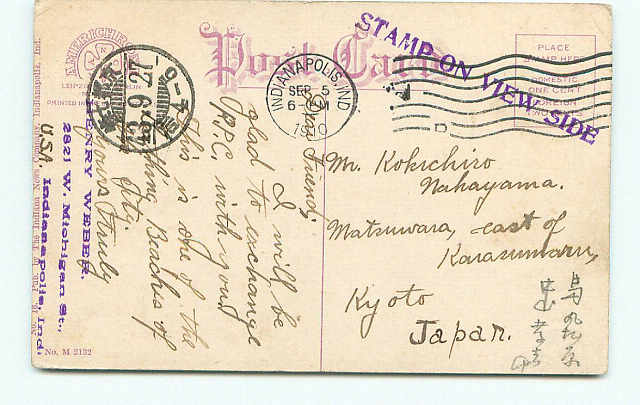 AMERICHROME
Post Card
STAMP ON VIEW SIDE
PLACE
STAMP HERE
DOMESTIC
ONE CENT
FOREIGN
TWO CENTS
INDIANAPOLIS, IND.
SEP 5
6- PM
1910
43.9.27
Dear Friend,
I will be
glad to exchange
P.P.C. with you
This is one of the
Bathing Beaches of
Yours Truly
HENRY WEBER.
2821 W. Michigan St.,
Indianapolis, Ind.
U.S.A.
Pub. by The Indiana News Company, Indianapolis, Ind.
No. M 2132
Mr. Kokichiro
Nakayama.
Matsuwara, east of
Karasumaru,
Kyoto
Japan.